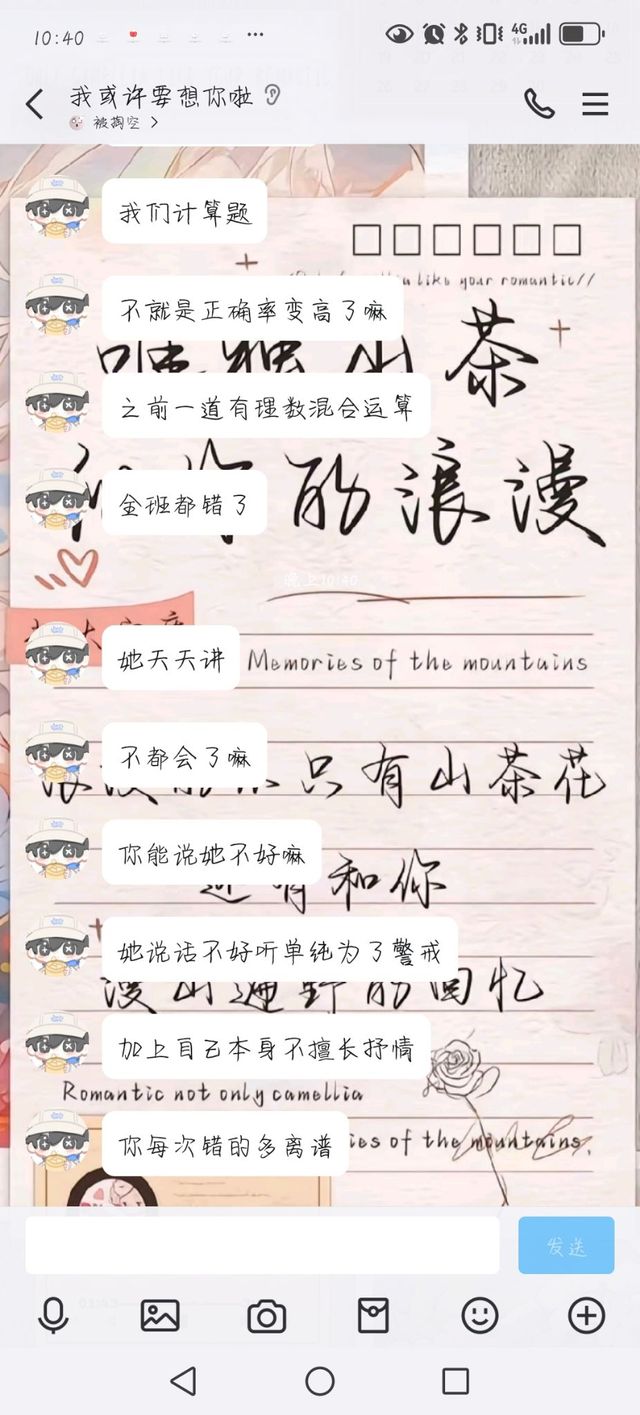 10:40
4G
我或许要想你啦
被掏空
我们计算题
like your romantic//
不就是正确率变高了嘛
山茶
之前一道有理数混合运算
的浪漫
全班都错了
晚上10:40
她天天讲
Memories of the mountains
不都会了嘛
只有山茶花
你能说她不好嘛
和你
她说话不好听单纯为了警戒
漫山遍野的回忆
加上自己本身不擅长抒情
Romantic not only camellia
你每次错的多离谱
ies of the mountains,
发送